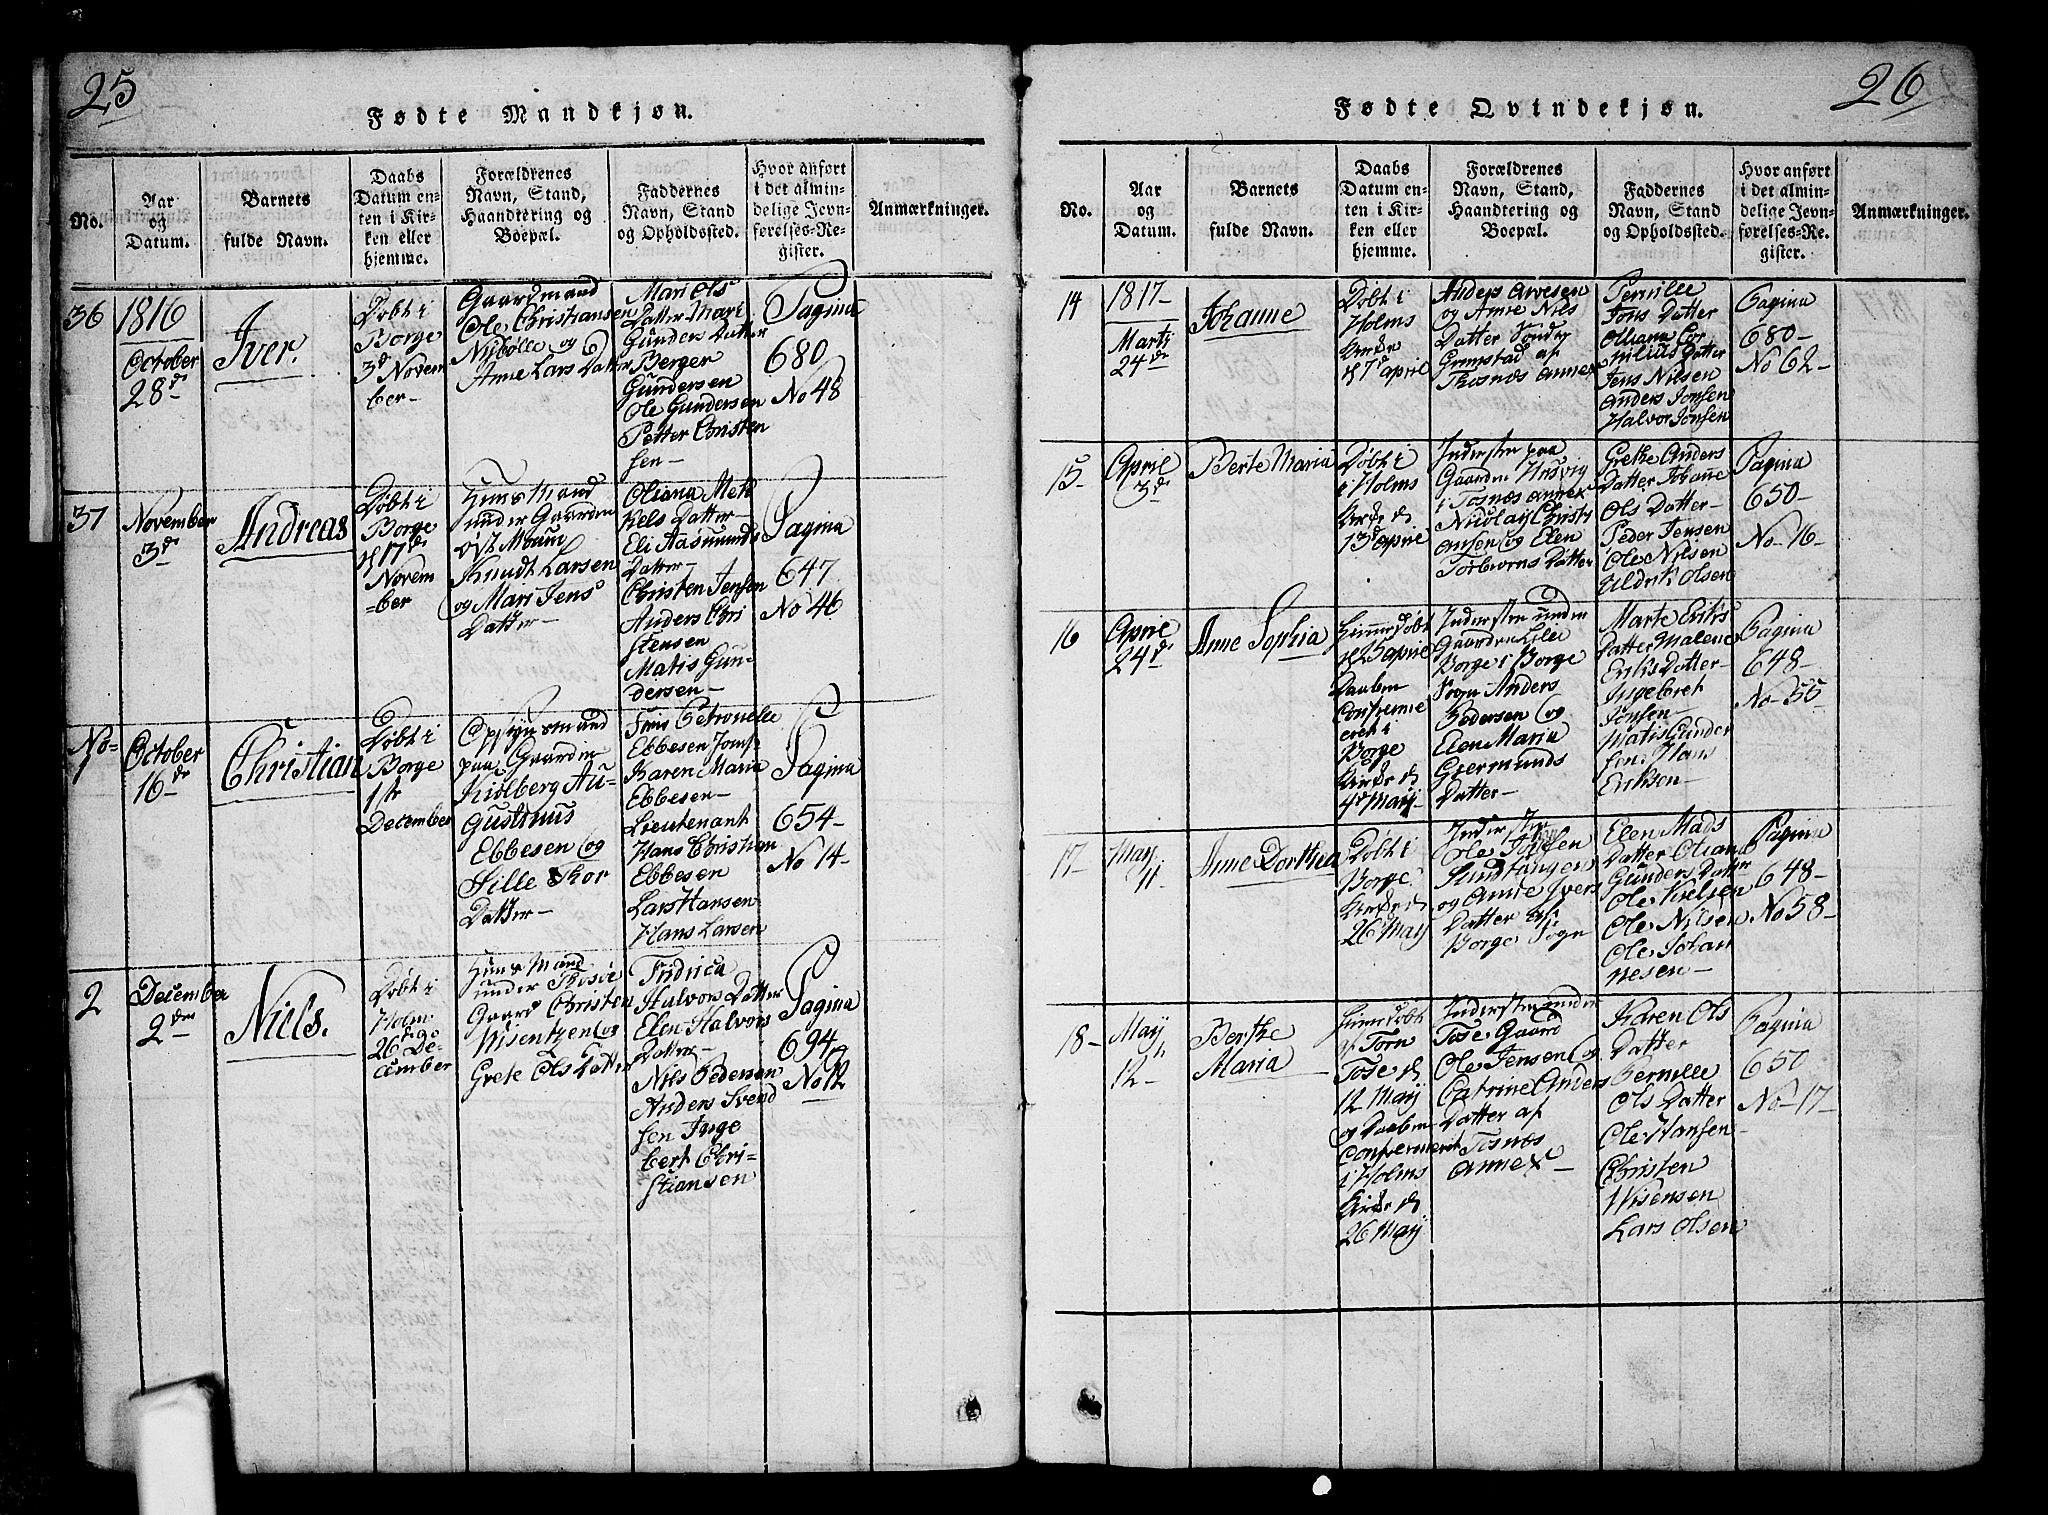 25
Fødte Mandkjøn.
No.
Aar
og
Datum.
Barnets
fulde Navn.
Daabs
Datum en-
ten i Kir-
ken eller
hjemme.
Forældrenes
Navn, Stand,
Haandtering og
Boepæl.
Faddernes
Navn, Stand
og Opholdssted.
Hvor anført
i det almin-
delige Jevn-
førelses-Re-
gister.
Anmærkninger.
36
1816
October
28de
Iver.
Døbt i
Borge
3d Novem
ber-
Gaardmand
Ole Christiansen
Nÿbølle og
Anne Lars Datter
Mari Ols
Datter Mari
Gunders Datter
Berger
Gundersen
Ole Gundersen
Petter Christen
sen-
Pagina
680
No 48
37
November
3de
Andreas
Døbt i
Borge
d 17de
Novem
=ber
Huusmand
under Gaarden
øst Moum
Knudt Larsen
og Mari Jens
Datter-
Oliana Mek
Kels Datter-
Eli Aasmunds
Datter-
Christen Jensen
Anders Chri
stensen
Matis Gun-
dersen-
Pagina
647
No 46
No-
1
October
16de
Christian
Døbt i
Borge
1ste
December
Opsÿnsmand
paa Gaarden
Kiølberg Au-
gustinus
Ebbesen og
Sille Tor
Datter-
Petronelle
Ebbesen Jomf
Karen Maria
Ebbesen-
Lieutenant
Hans Christian
Ebbesen
Lars Hansen
Hans Larsen
Pagina
654-
No 14-
2
December
2den
Niels.
Døbt i
Holm
26de De-
cember
Huusmand
under Thosøe
Gaard Christen
Wisentzen og
Grete Ols Datter
Fridrica
Halvors Datter
Elen Halvors
Datter-
Nils Pedersen
Anders Svend
sen Inge
bert Chri-
stiansen
Pagina
694
No 12
26
Fødte Qvindekjøn.
No.
Aar
og
Datum.
Barnets
fulde Navn.
Daabs
Datum en-
ten i Kir-
ken eller
hjemme.
Forældrenes
Navn, Stand,
Haandtering og
Boepæl.
Faddernes
Navn, Stand
og Opholdssted.
Hvor anført
i det almin-
delige Jevn-
førelses-Re-
gister.
Anmærkninger.
14
1817-
Marti
24de
Johanne
Døbt i
Holms
Kirke
d 7d april
Anders Arvesen
og Anne Nils
Datter Sønder
Grimstad af
Thosnæs Annex
Pernille
Jons Datter
Olliana Cor
nilius Datter
Jens Nilsen
Anders Jonsen
Halvor Jonsen
Pagina
680-
No 62-
15
April
3de
Berte Maria
Døbt i
i Holms
Kirke d
13d april
Inderster paa
Gaarden
i Tosnæs annex
Nicolaÿ Christi
ansen og Elen
Torbiørns Datter
Grethe Anders
Datter Johanne
Ols Datter-
Peder Jensen
Ole Nilsen
Uldrik Olsen
Pagina
650-
No-16-
16
April
24de
Anne Sophia
Hiemmedøbt
april
Daaben
Confirme
eret i
Borge
Kirke d
4d Maÿ-
Inderster under
Gaarden Lille
Borge i Borge
Sogn Anders
Pedersen og
Elen Maria
Germunds
Datter-
Marte Eriks
Datter Malene
Eriks Datter-
Ingebret
Jonsen-
Matis Gunder
sen. Hans
Eriksen-
Pagina
648-
No-55-
17-
Maÿ
11
Anne Dorthea
Døbt i
Borge
Kirke d
26 Maÿ
Inderster
Ole
Sundtangen
og Anne Ivers
Datter af
Borge Sogn
Elen Mads
Datter Olian
Gunders Datter
Ole Kielsen
Ole Nilsen
Ole Johan
nesen-
Pagina
648-
No 58-
18-
Maÿ
12-
Berthe
Maria
Hiemmedøbt
af Jorn
Tose d
12 Maÿ
og Daaben
Confirmeret
i Holms
Kirke d
26 Maÿ
Inderster under
Tose Gaard
Ole Jensen og
Catrine Anders
Datter af
Tosnæs
Annex-
Karen Ols
Datter
Pernille
Ols Datter
Ole Hansen
Christen
Wisensen
Lars Olsen
Pagina
650
No-17-